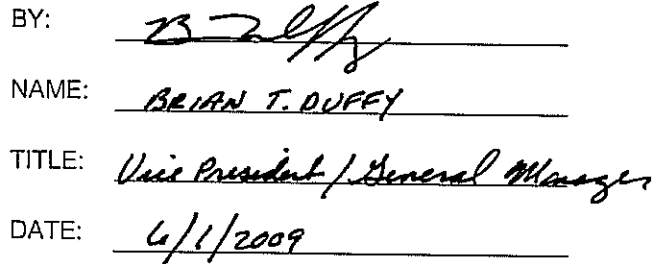 BY: B Duffy
NAME: BRIAN T. DUFFY
TITLE: Vice President / General Manager
DATE: 6/1/2009